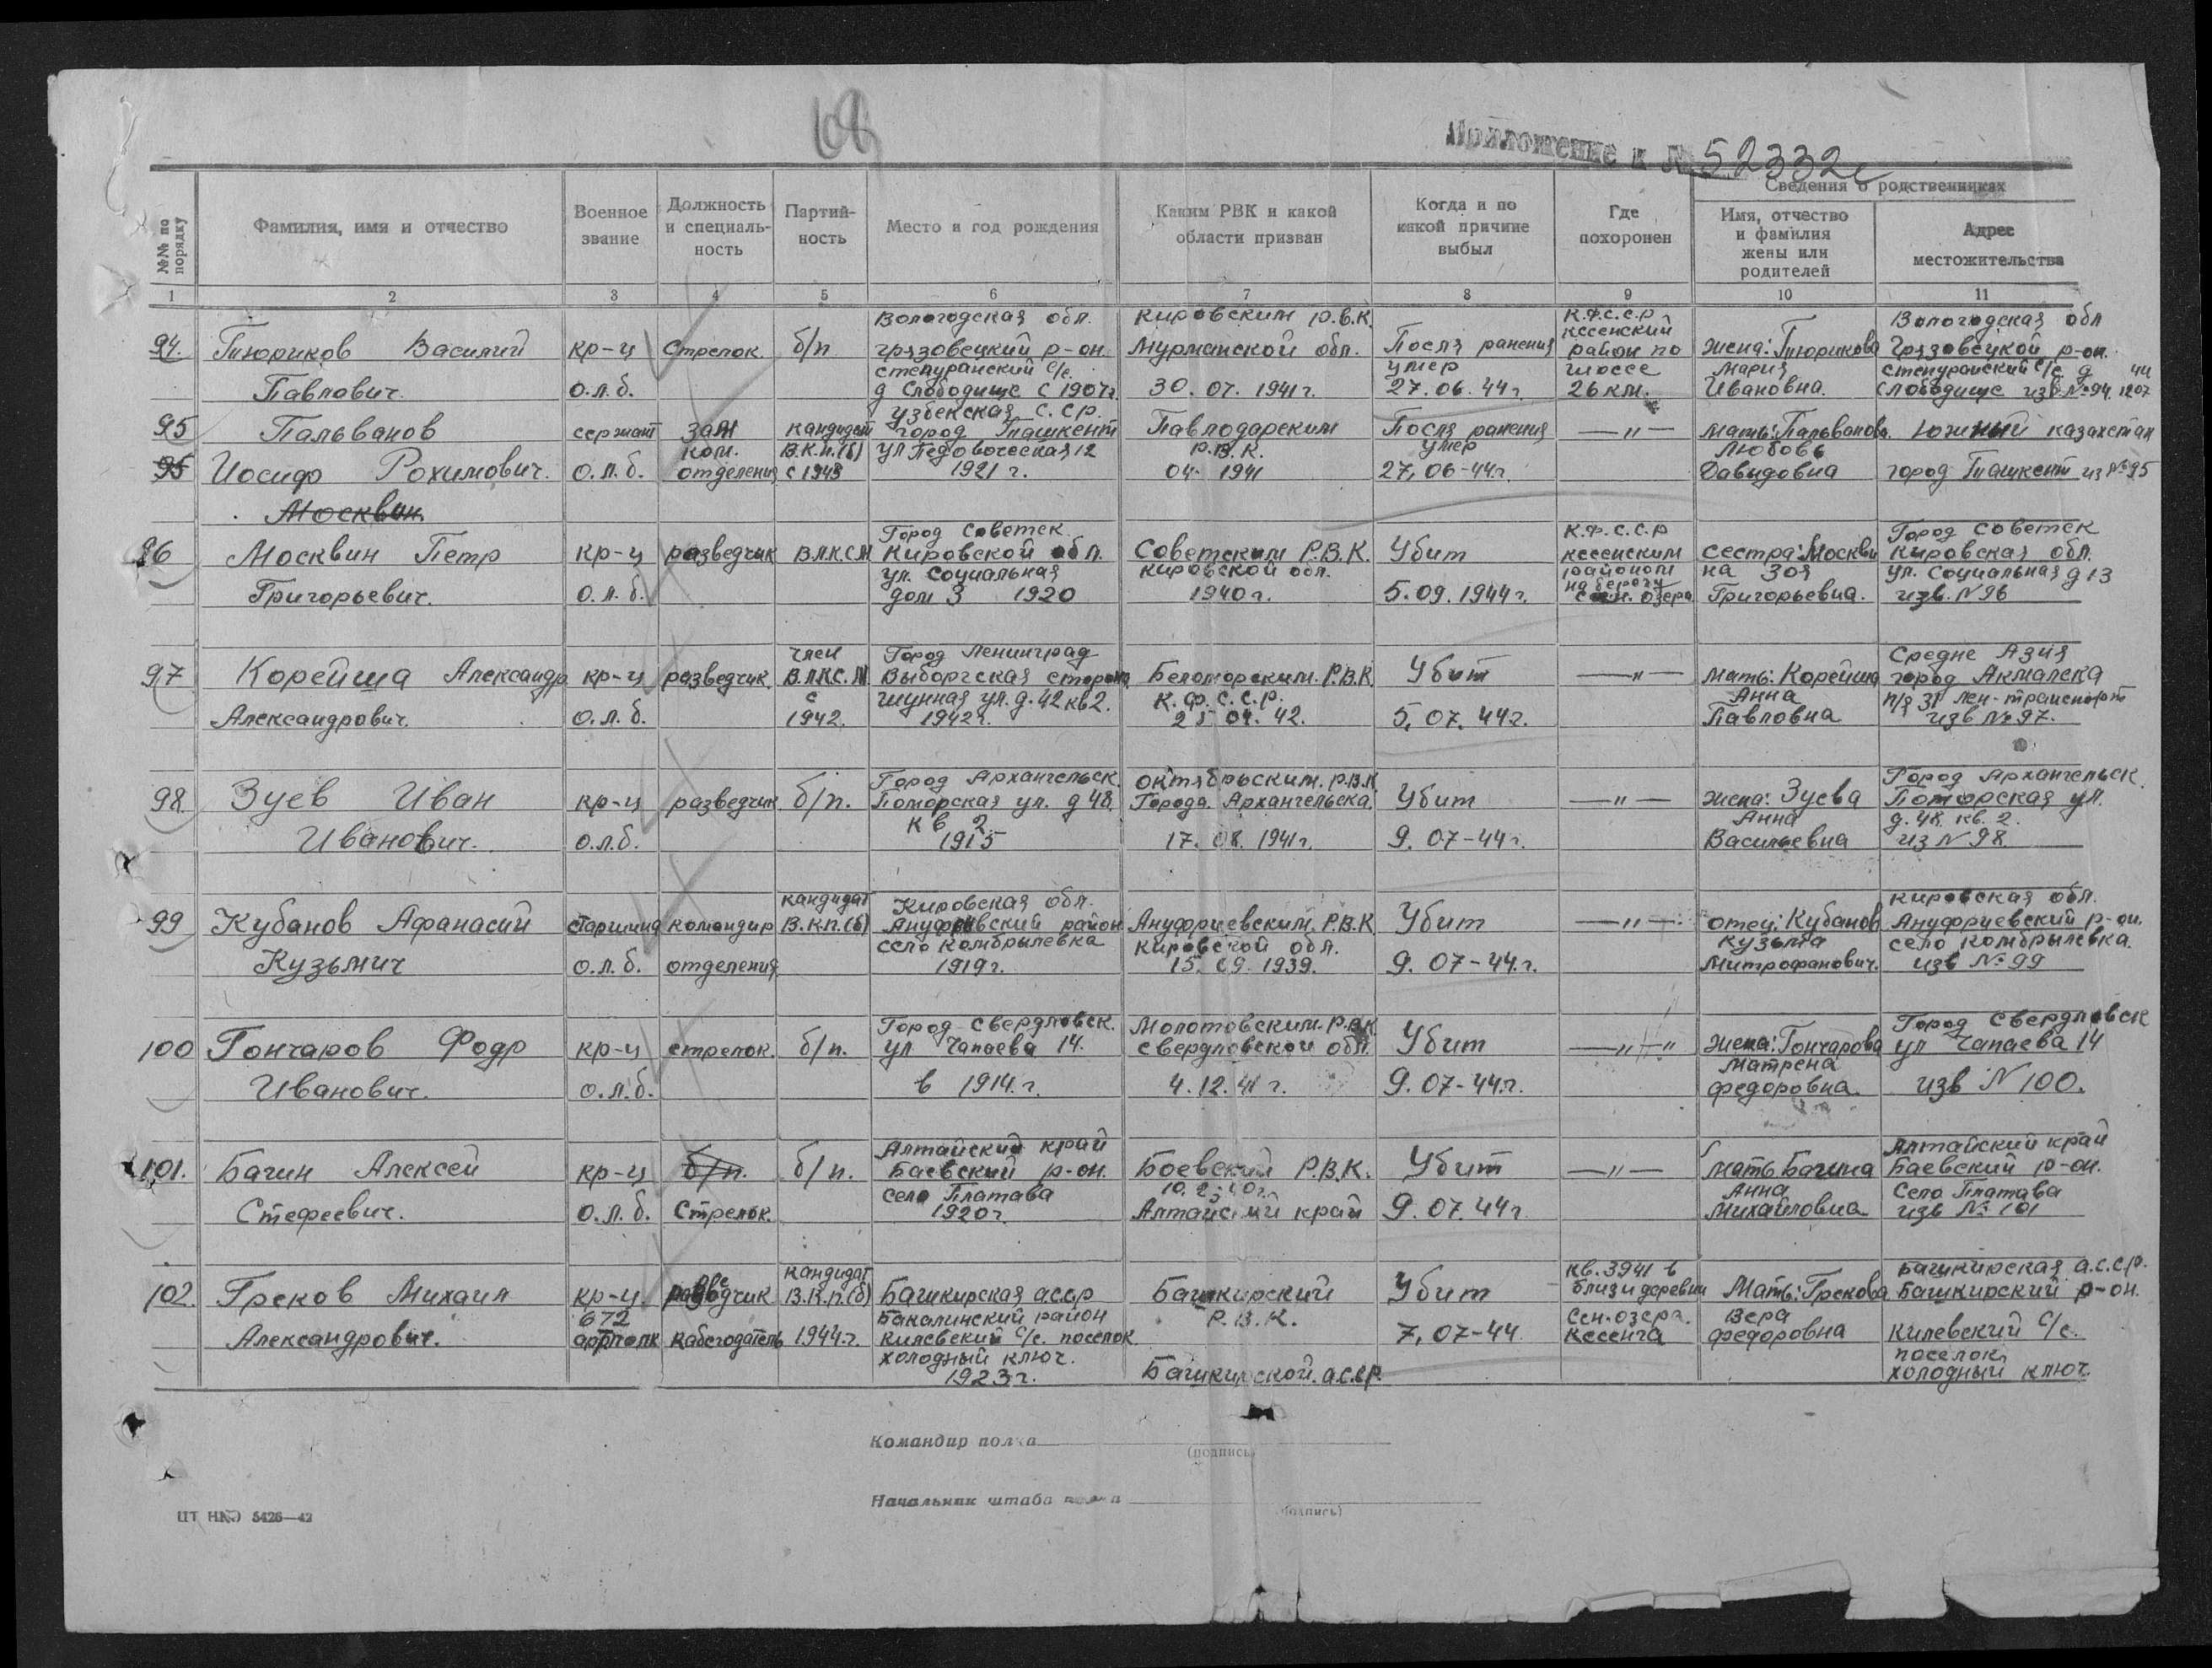 68
Приложение к № 52332с
№№ по порядку
Фамилия, имя и отчество
Военное звание
Должность и специаль-ность
Партий-ность
Место и год рождения
Каким РВК и какой области призван
Когда и по какой причине выбыл
Где похоронен
Сведения о родственниках
Имя, отчество и фамилия жены или родителей
Адрес местожительства
1 2 3 4 5 6 7 8 9 10 11
94. Тюриков Василий Павлович.
кр-ц о.л.б.
Стрелок.
б/п
Вологодская обл. грязовецкий р-он. степуранский с/с. д Слободище с 1907г.
Кировским Р.В.К. Мурманской обл. 30.07.1941г.
Посля ранения умер 27.06.44г.
К.Ф.С.С.Р кесенский район по шоссе 26 км.
жена: Тюрикова Мария Ивановна.
Вологодская обл Грязовецкой р-он. степуранский с/с д Слободище изв №94
95 Пальванов
95 Иосиф Рохимович.
Москвин
сержант о.л.б.
зам ком. отделения
кандидат В.К.П.(б) с 1943
узбекская С.Ср. город Ташкент 1921 г.
Павлодарским Р.В.К. 04 1941
Посля ранения умер 27,06-44г.
—"—
мать: Пальванова Любовь Давыдовна
Южный казахстан город Ташкент из №95
96 Москвин Петр Григорьевич.
кр-ц о.л.б.
разведчик
ВЛКСМ
Город Советск Кировской обл. ул. Социальная дом 3 1920
Советским Р.В.К. кировской обл. 1940г.
Убит 5.09.1944г.
К.Ф.С.С.Р кесенским районом на берегу сен. озера
сестра: Москвина Зоя Григорьевна.
Город Советск Кировская обл. ул. Социальная д 13 изв. №96
97 Корейша Александр Александрович.
кр-ц о.л.б.
разведчик.
член ВЛКС.М с 1942.
Город Ленинград Выборгская сторона шунная ул. д.42 кв2. 1942г.
Беломорским. Р.В.К К.Ф.С.С.Р. 25 07. 42.
Убит 5.07.44г.
—"—
мать: Корейша Анна Павловна
Средне Азия город Акмалска п/я 31 лен-транспорт изв №97.
98. Зуев Иван Иванович.
кр-ц о.л.б.
разведчик
б/п.
Город Архангельск. Поморская ул. д 48. кв 2 1915
октябрьским. Р.В.К Города. Архангельска. 17.08.1941г.
Убит 9.07-44г.
—"—
жена: Зуева Анна Васильевна
Город Архангельск. Поморская ул. д.48 кв.2. из №98
99 Кубанов Афанасий Кузьмич
старшина о.л.б.
командир отделения
кандидат В.К.П.(б)
Кировская обл. Ануфриевский район село Комбрылевка 1919г.
Ануфриевским. Р.В.К кировской обл. 15.09.1939.
Убит 9.07-44.г.
—"—
отец: Кубанов Кузьма Митрофанович.
кировская обл. Ануфриевский р-он. село Комбрылевка. изв №99
100 Гончаров Фодр Иванович.
кр-ц о.л.б.
стрелок.
б/п.
Город Свердловск. ул Чапаева 14. в 1914.г.
Молотовским. Р.В.К Свердловской обл. 4.12.41г.
Убит 9.07-44.г.
—"—"
жена: Гончарова Матрена федоровна.
Город Свердловск ул Чапаева 14 изв №100.
101. Багин Алексей Стефеевич.
кр-ц о.л.б.
б/п. Стрелок.
б/п.
Алтайский край Баевский р-он. село Платава 1920г.
Боевский Р.В.К. 10.2.40г. Алтайский край
Убит 9.07.44г
—"—
мать Багина Анна Михайловна
Алтайский край Баевский р-он. Село Платава изв № 101
102. Греков Михаил Александрович.
кр-ц. 672 артполк
разведчик
кандидат В.К.П.(б) 1944.г.
Башкирская асср Бакалинский район килевский с/с. поселок холодный ключ. 1923г.
Башкирский Р.В.К. Башкирской.а.сср.
Убит 7,07-44
кв.3941 в близи деревни Сен.озера. кесенга
Мать: Грекова Вера федоровна
Башкирская а.с.ср. Башкирский р-он. Килевский с/с. поселок холодный ключ.
Командир полка (подпись)
Начальник штаба полка (подпись)
ЦТ НКО 5426—42